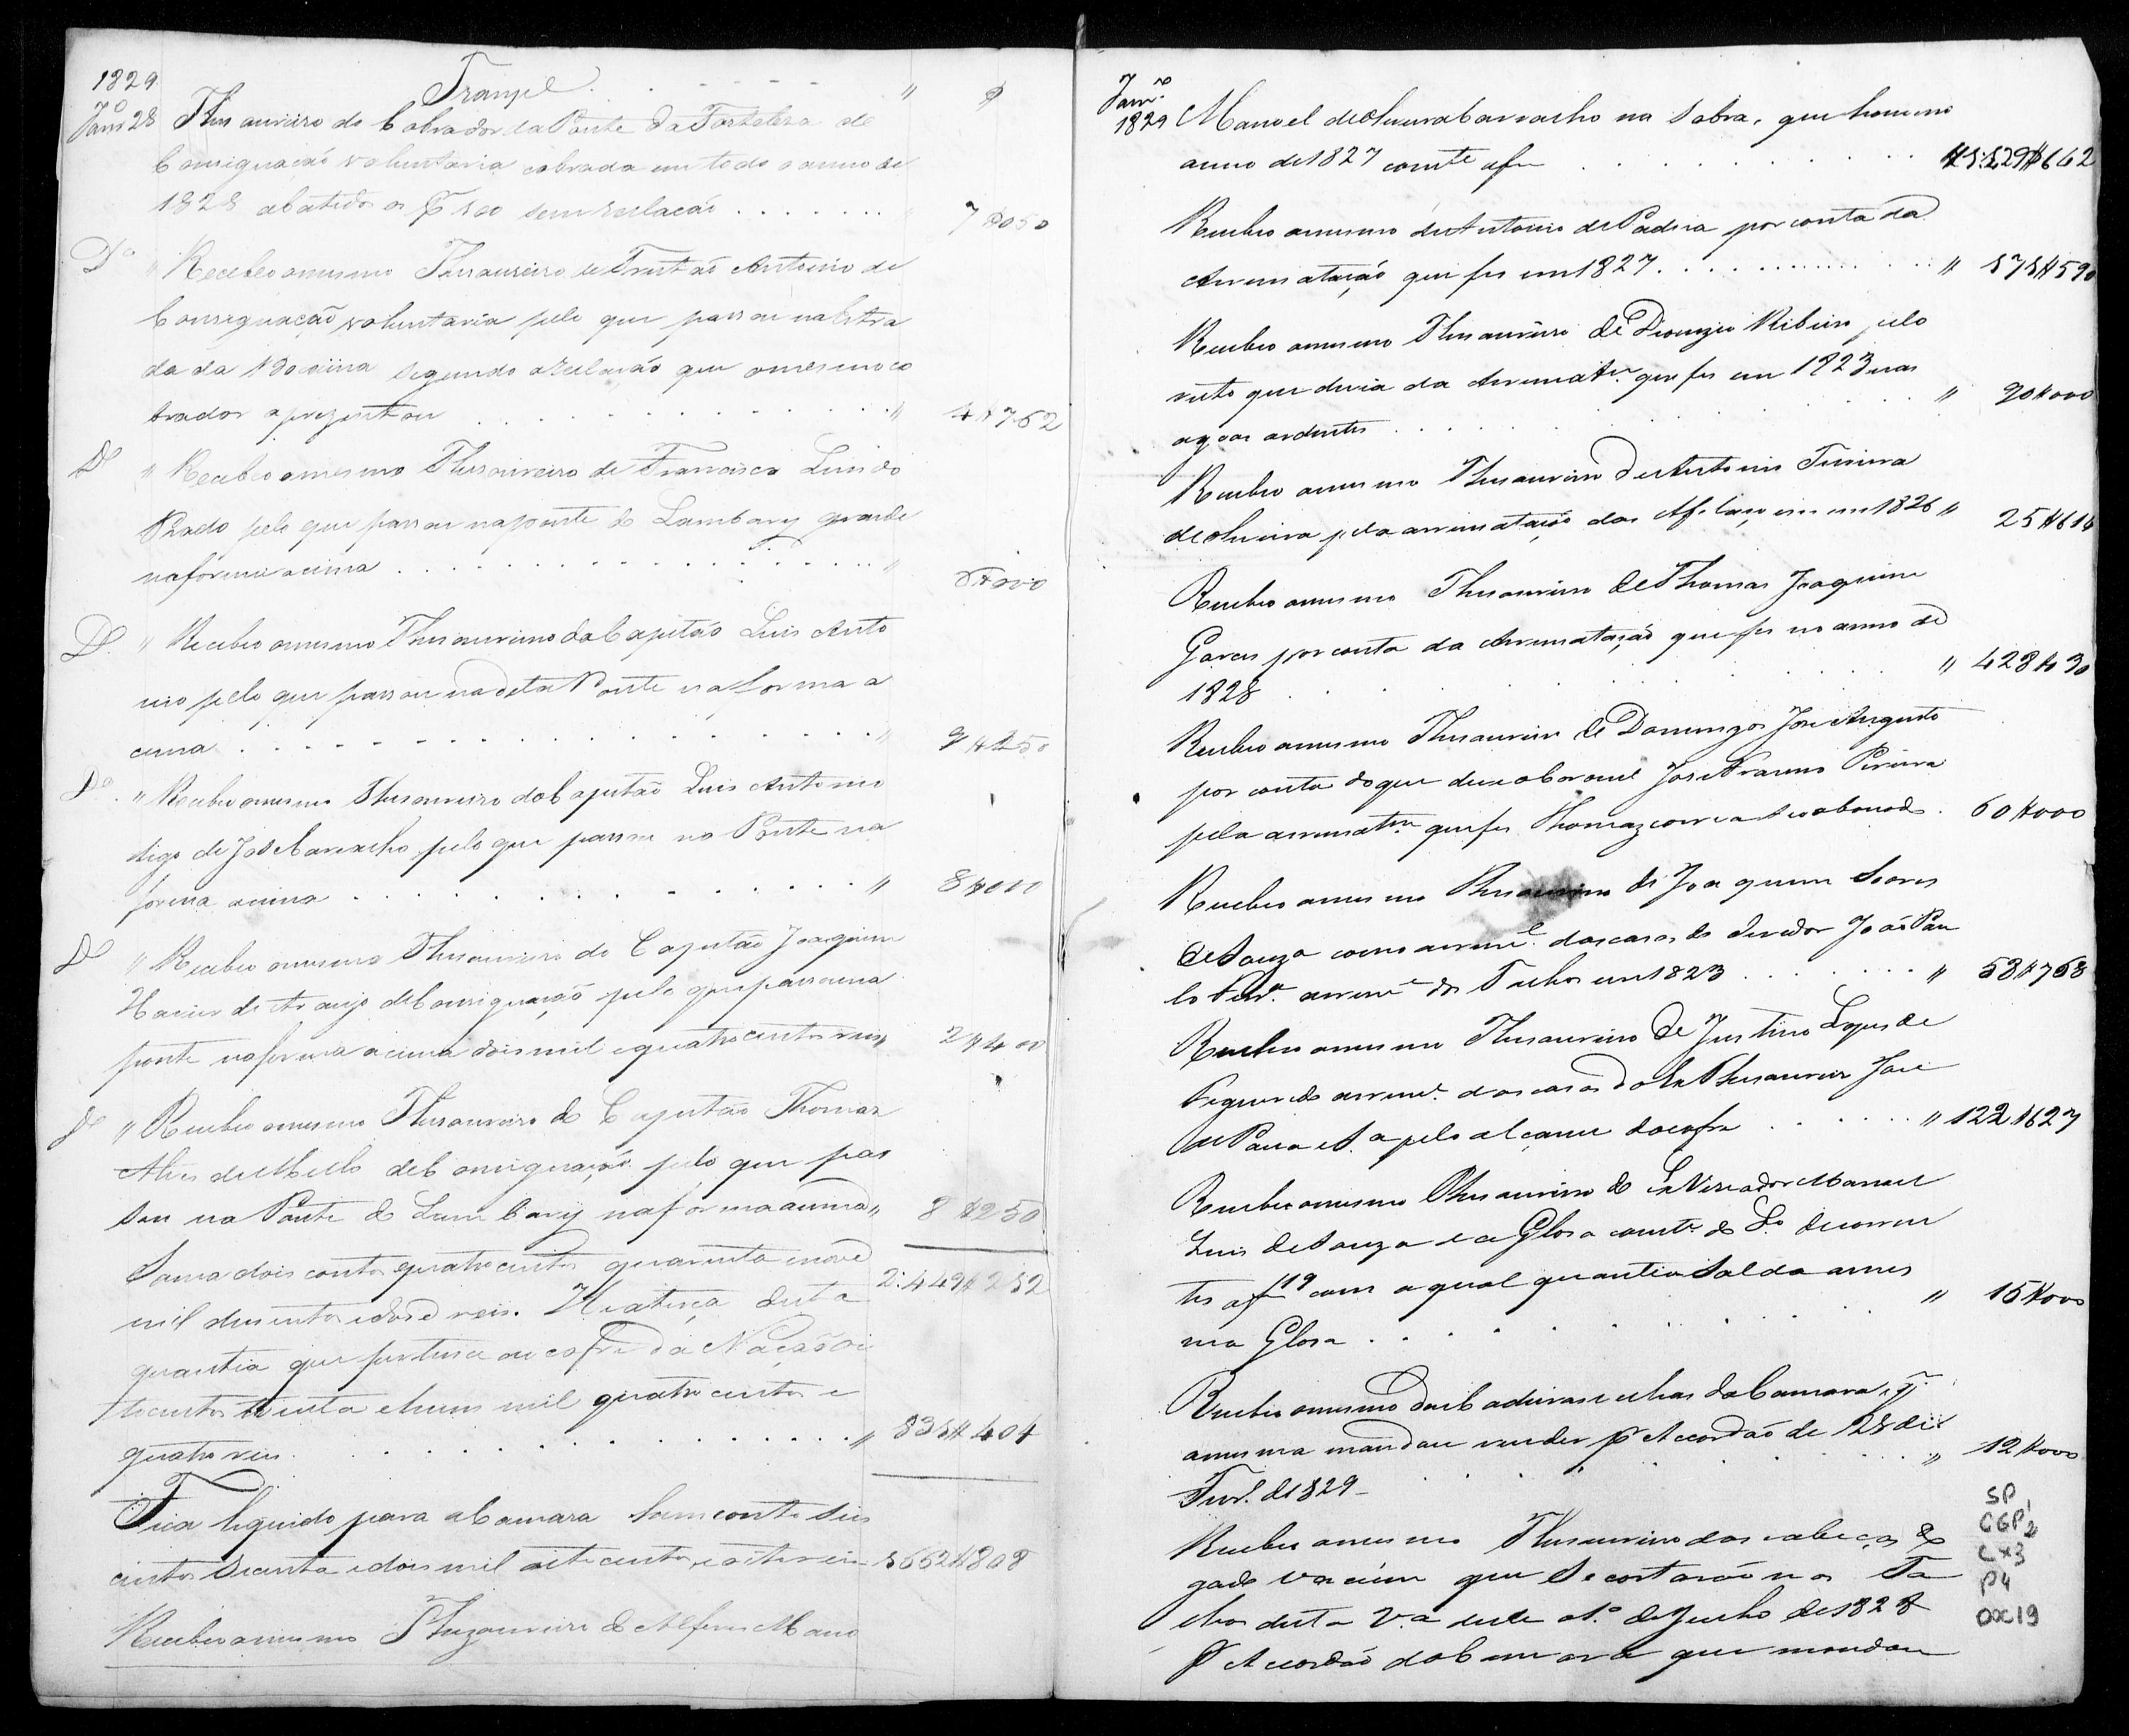 1829
Transpe . . . . . . " $
Jan.ro 28 Thesaureiro do Cobrador da Ponte da Fortaleza de
Consignacão voluntaria cobrada em todo o anno de
1828 abatidos os sem relacaõ . . . . . . . 7$050
Do " Recebeo o mesmo Thesaureiro de Tristaõ Antonio de
Consignação voluntaria pelo que passou na Estra
da da Bocaina segundo a relacaõ que o mesmo co
brador aprezentou . . . . . . . . . " 4$762
Do " Recebeo o mesmo Thesaureiro de Francisco Luis do
Prado pelo que passou na ponte do Lambary grande
na forma acima . . . . . . . . . . . "
Do " Recebeo o mesmo Thesaureiro do Capitaõ Luis Anto
nio pelo que passou na dita Ponte na forma a
cima . . . . . . . . . . . . . "
Do " Recebeo o mesmo Thesaureiro do Capitaõ Luis Antonio
digo de José Carvalho pelo que passou na Ponte na
forma acima . . . . . . . . . . . " 8$000
Do " Recebeo o mesmo Thesaureiro do Capitaõ Joaquim
Xavier de Araujo de Consignação pelo que passou na
ponte na forma acima dois mil e quatro centos reis " 2$400
Do " Recebeo o mesmo Thesaureiro do Capitaõ Thomaz
Alves de Mello de Consignação pelo que pas
sou na Ponte do Lambary na forma acima " 8$250
Soma dois contos quatro centos quarenta e nove
mil duzentos e doze reis. 2:449$212
quantia que pertence ao cofre da Nação oi
tocentos trinta e hum mil quatro centos e
quatro reis . . . . . . . . . . . " 831$404
Fica liquido para a Camara hum conto seis
centos secenta e dois mil oito centos e oito reis 1662$808
Recebeo o mesmo Thezaureiro do Alferes Mano
Jan.ro
1829 Manoel de Oliveira Carvalho na Sobra, que houve no
anno de 1827 . . . . . . . . . .
Recebeo o mesmo de Antonio de Padua por conta da
Arrematação que fes em 1827 . . . . . . . . . . " 171$590
Recebeo o mesmo Thesaureiro de Dionizio Ribeiro pelo
resto que devia da Arremat.m que fes em 1823 nas
agoas ardentes . . . . . . . . " 90$000
Recebeo o mesmo Thesaureiro de Antonio Teixeira
de Oliveira pela arrematação das Afilaçoens em 1826 " 25$614
Recebeo o mesmo Thesaureiro de Thomas Joaquim
Garces por conta da Arrematação que fes no anno de
1828 . . . . . . . . . . " 428$30
Recebeo o mesmo Thesaureiro de Domingos Jose Augusto
por conta do que deve o Coronel Jose Pereira
pela arremat.m que fes Thomaz Correa seo abonado . 60$000
Recebeo o mesmo Thesaureiro de Joaquim Soares
de Souza como arrem.e das casas do devedor Joaõ Pau
lo . . . . . . em 1823 . . . . . . " 53$768
Recebeo o mesmo Thesaureiro de Justino Lopes de
Figueiredo arrem.e das casas do Ex Thesaureiro Jose
de Paiva e S.a pelo alcance do cofre . . . . . " 122$627
Recebeo o mesmo Thesaureiro do Ex Vereador Manoel
Luis de Souza e a Glosa const.e do L.o decorren
tes a f 19 com a qual quantia salda a mes
ma Glosa . . . . . . . . . . " 15$000
Recebeo o mesmo das Cadeiras velhas da Camara q̃
a mesma mandou vender pr Acordaõ de 28 de
Fev.o de 1829 . . . . . . . . . " 12$000
Recebeo o mesmo Thesaureiro das cabeças de
gado vacúm que se cortaraõ nos Ta
lhos desta V.a desde o 1.o de Junho de 1828
Pr Acordaõ da Camara que mandou
SP
CGP2
Cx3
P4
DOC19